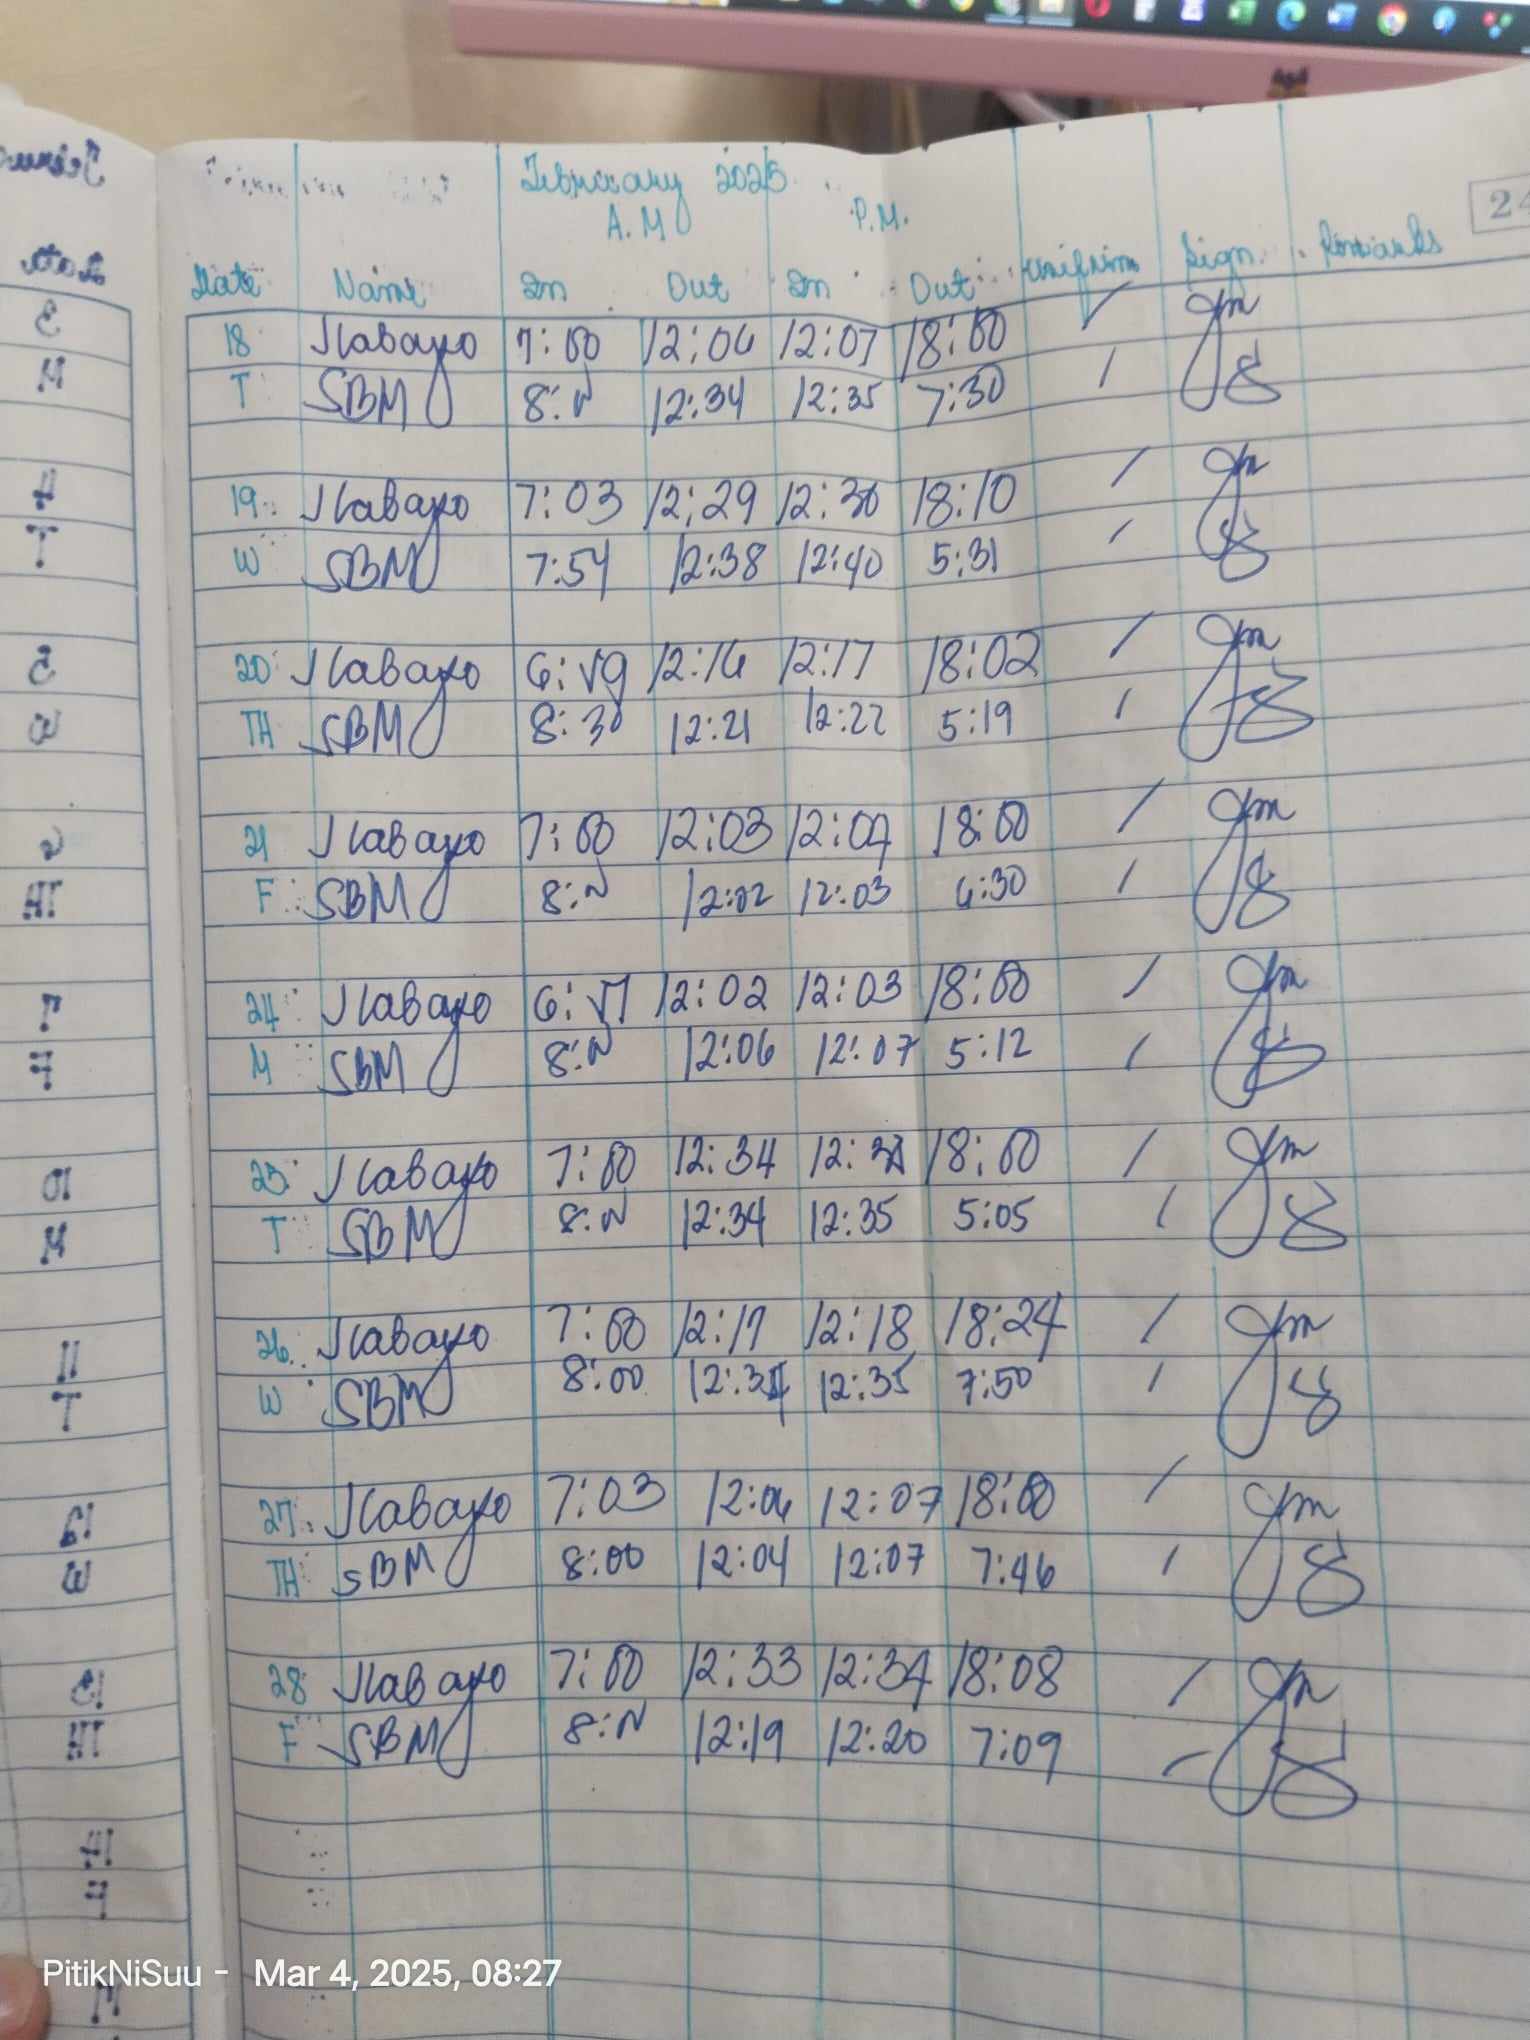 February 2025
A.M P.M.
Date Name In Out In Out Uniform Sign. Remarks
24
18 Jlabayo 7:00 12:06 12:07 18:00 /
T SBM 8:N 12:34 12:35 7:30 /
19 Jlabayo 7:03 12:29 12:30 18:10 /
W SBM 7:54 12:38 12:40 5:31 /
20 Jlabayo 6:59 12:16 12:17 18:02 /
TH SBM 8:30 12:21 12:22 5:19 /
21 Jlabayo 7:00 12:03 12:04 18:00 /
F SBM 8:N 12:02 12:03 6:30 /
24 Jlabayo 6:57 12:02 12:03 18:00 /
M SBM 8:N 12:06 12:07 5:12 /
25 Jlabayo 7:00 12:34 18:00 /
T SBM 8:N 12:34 12:35 5:05 /
26 Jlabayo 7:00 12:17 12:18 18:24 /
W SBM 8:00 12:34 12:35 7:50 /
27 Jlabayo 7:03 12:06 12:07 18:00 /
TH SBM 8:00 12:04 12:07 7:46 /
28 Jlabayo 7:00 12:33 12:34 18:08 /
F SBM 8:N 12:19 12:20 7:09 /
PitikNiSuu - Mar 4, 2025, 08:27